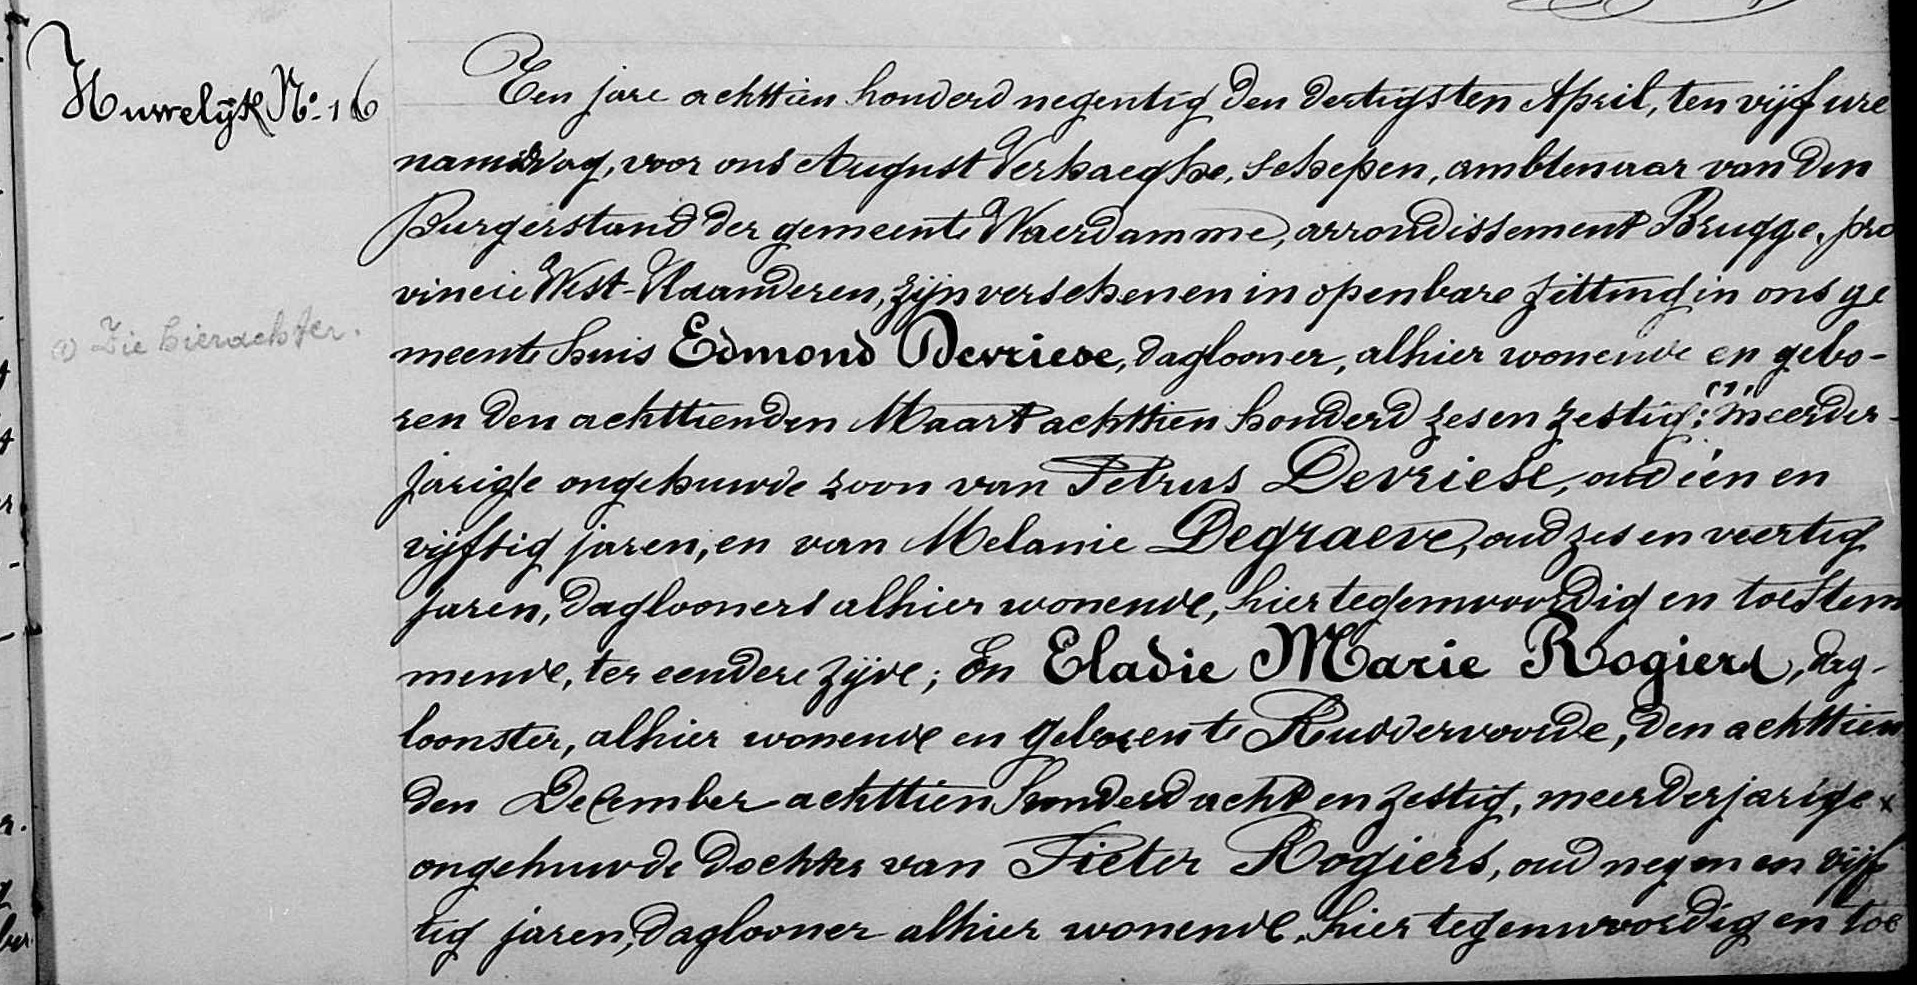 Huwelijk No. 16
Ten jare achttien honderd negentig den dertigsten April, ten vijf ure
namiddag, voor ons August Verhaeghe, schepen, ambtenaar van den
Burgerstand der gemeente Waerdamme, arrondissement Brugge, pro
vincie West-Vlaanderen, zijn verschenen in openbare zitting in ons ge
a) Zie hierachter.
meente huis Edmond Devriese, daglooner, alhier wonende en gebo-
ren den achttienden Maart achttien honderd zes en zestig; meerder-
jarige ongehuwde zoon van Petrus Devriese, oud één en
vijftig jaren, en van Melanie Degraeve, oud zes en veertig
jaren, daglooners alhier wonende, hier tegenwoordig en toestem
mende, ter eendere zijde; En Eladie Marie Rogiers, dag-
loonster, alhier wonende en geboren te Ruddervoorde, den achttien
den December achttien honderd acht en zestig, meerderjarige x
ongehuwde dochter van Pieter Rogiers, oud negen en vijf
tig jaren, daglooner alhier wonende, hier tegenwoordig en toe